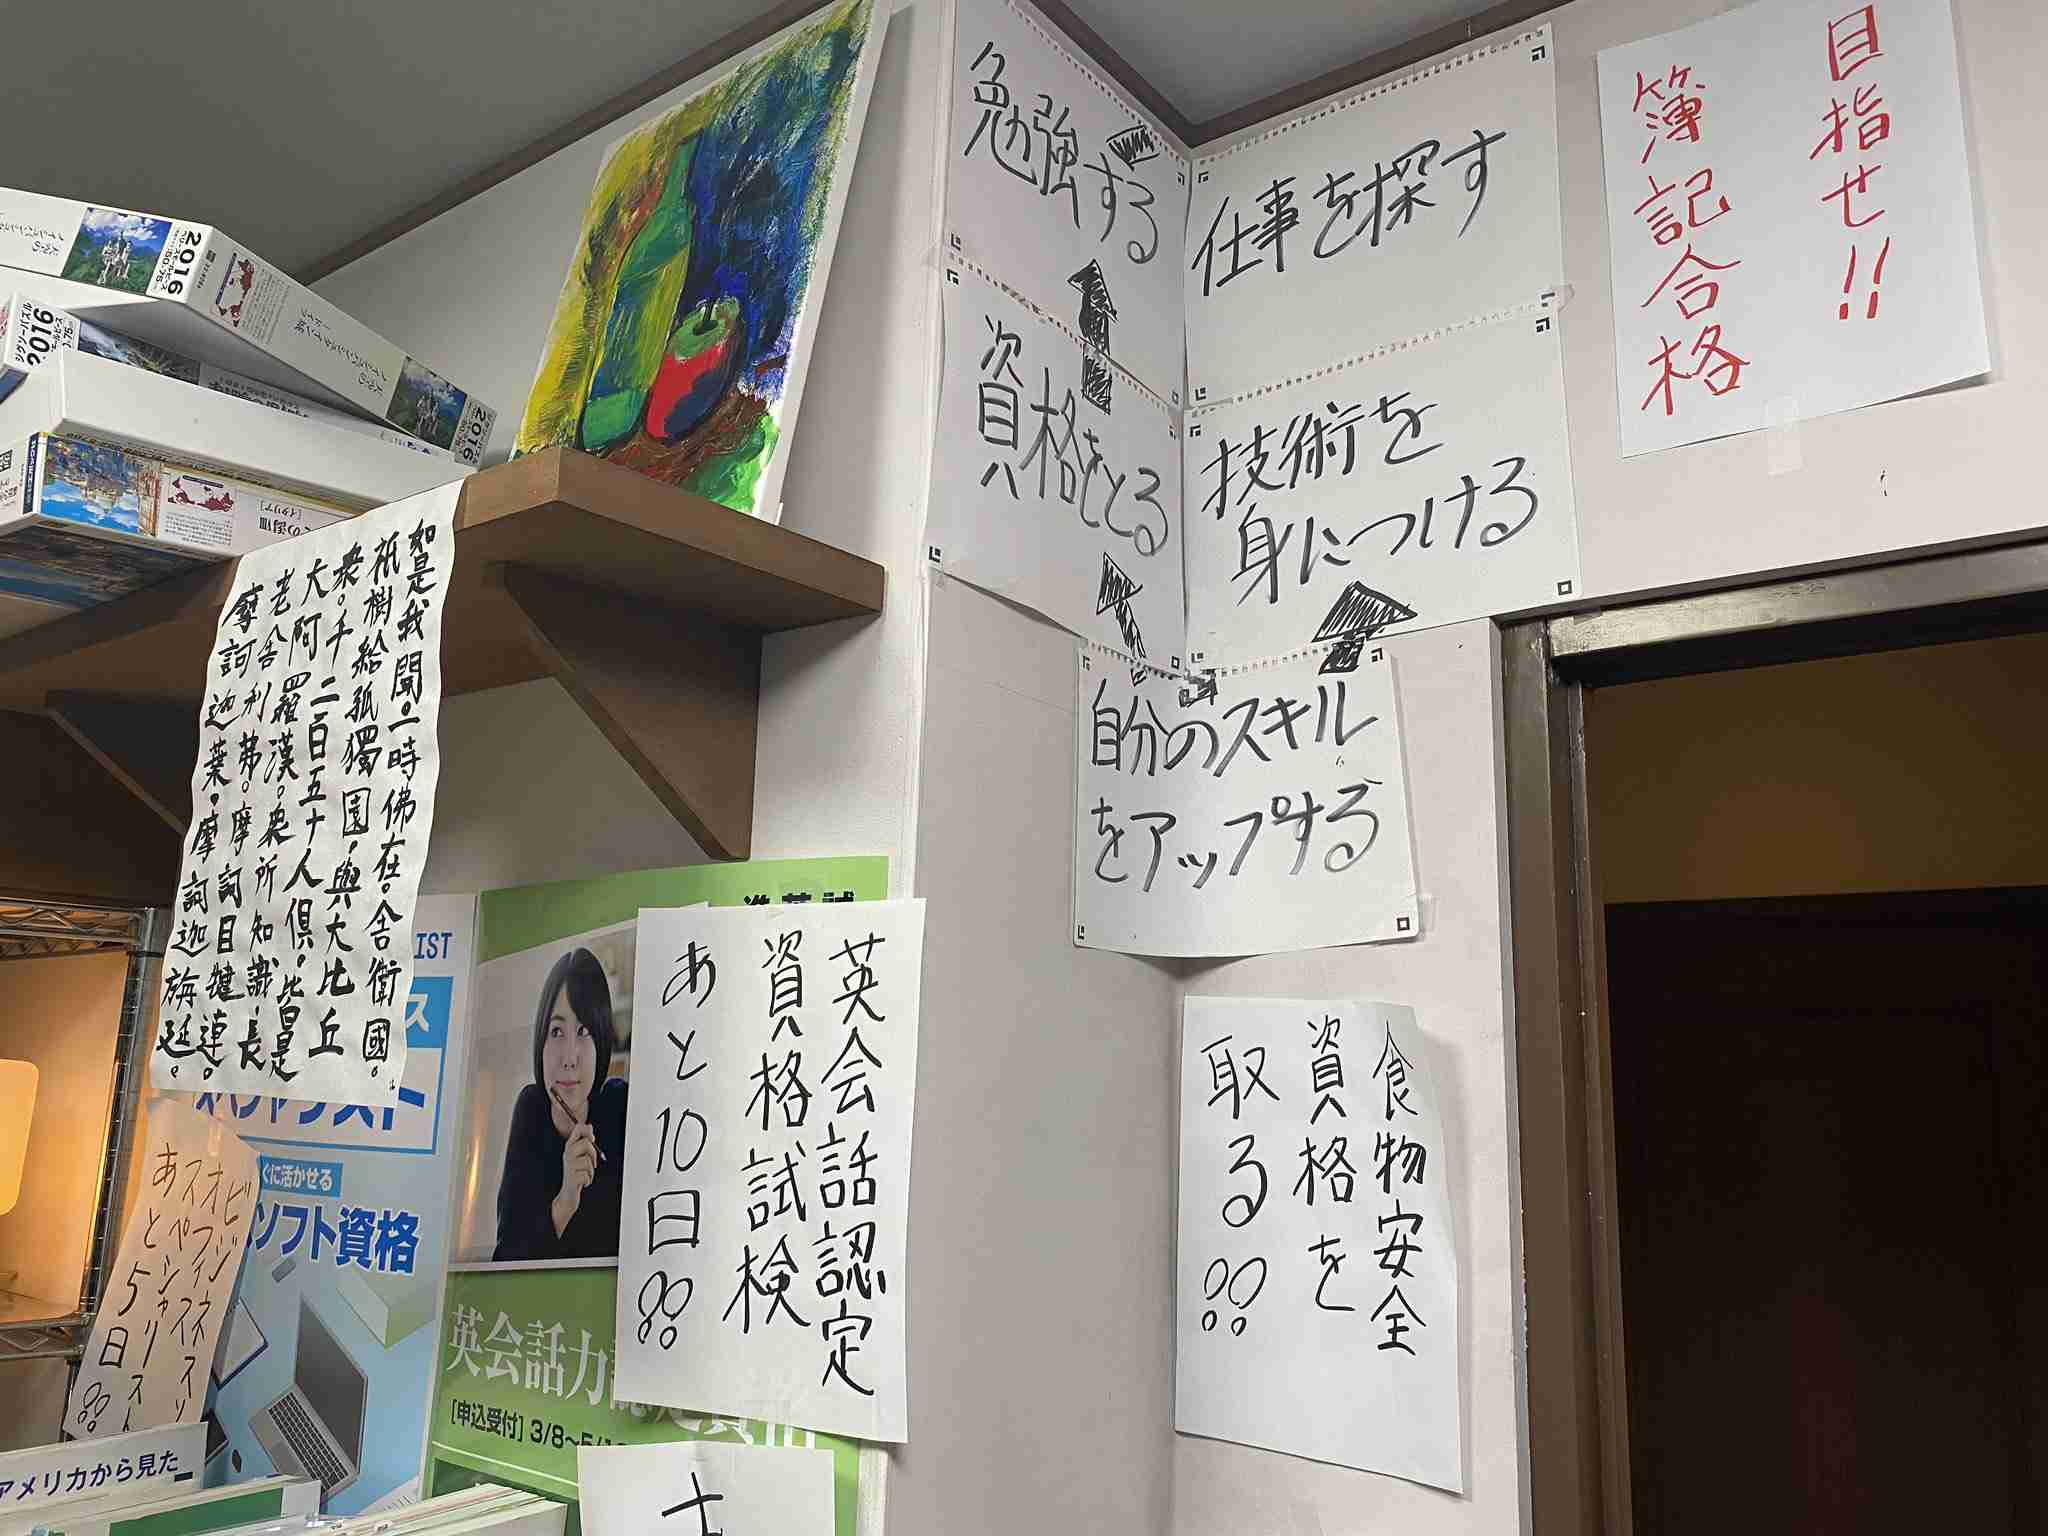 勉強する
仕事を探す
資格をとる
技術を
身につける
自分のスキル
をアップする
目指せ!!
簿記合格
食物安全
資格を
取る!!
英会話認定
資格試検
あと10日!!
如是我聞。一時佛在。舍衛國。
祇樹給孤獨園。與大比丘
衆。千二百五十人俱。皆是
大阿羅漢。衆所知識。長
老舍利弗。摩訶目犍連。
摩訶迦葉。摩訶迦旃延。
ビジネス
オフィススソ
スペシャリスト
あと5日!!
IST
ス
ぐに活かせる
ソフト資格
英会話力
[申込受付] 3/8〜5/
アメリカから見た
2016
2016
2016
[イタリア]